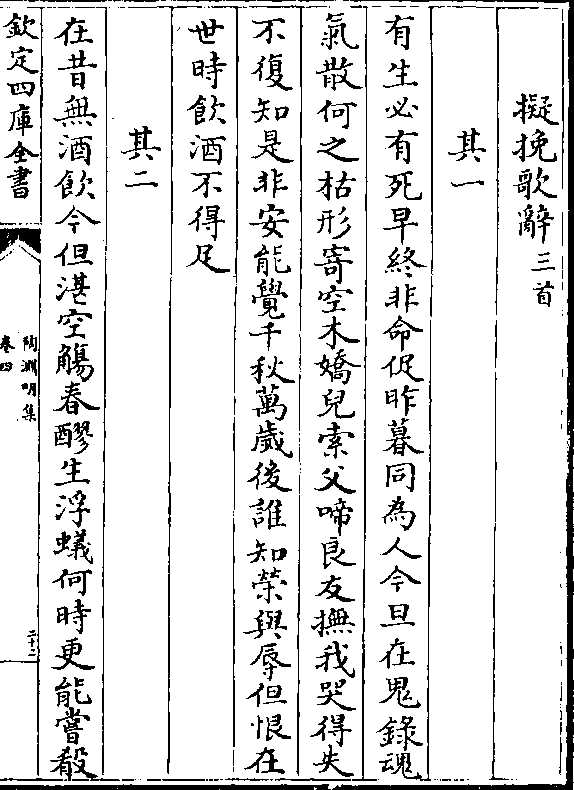 擬挽歌辭三首
其一
有生必有死早終非命促昨暮同為人今旦在鬼錄魂
氣散何之枯形寄空木嬌兒索父啼良友撫我哭得失
不復知是非安能覺千秋萬歲後誰知榮與辱但恨在
世時飲酒不得足
其二
在昔無酒飲今但湛空觴春醪生浮蟻何時更能嘗殽
欽定四庫全書
陶淵明集
卷四
二十二